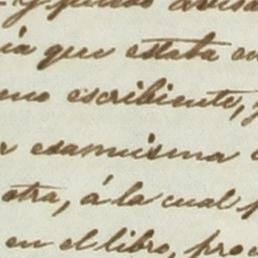 y puedo avisa
ia que estaba en
eno escribiente, y
r esamisma
otra, á la cual p
en el libro, proc